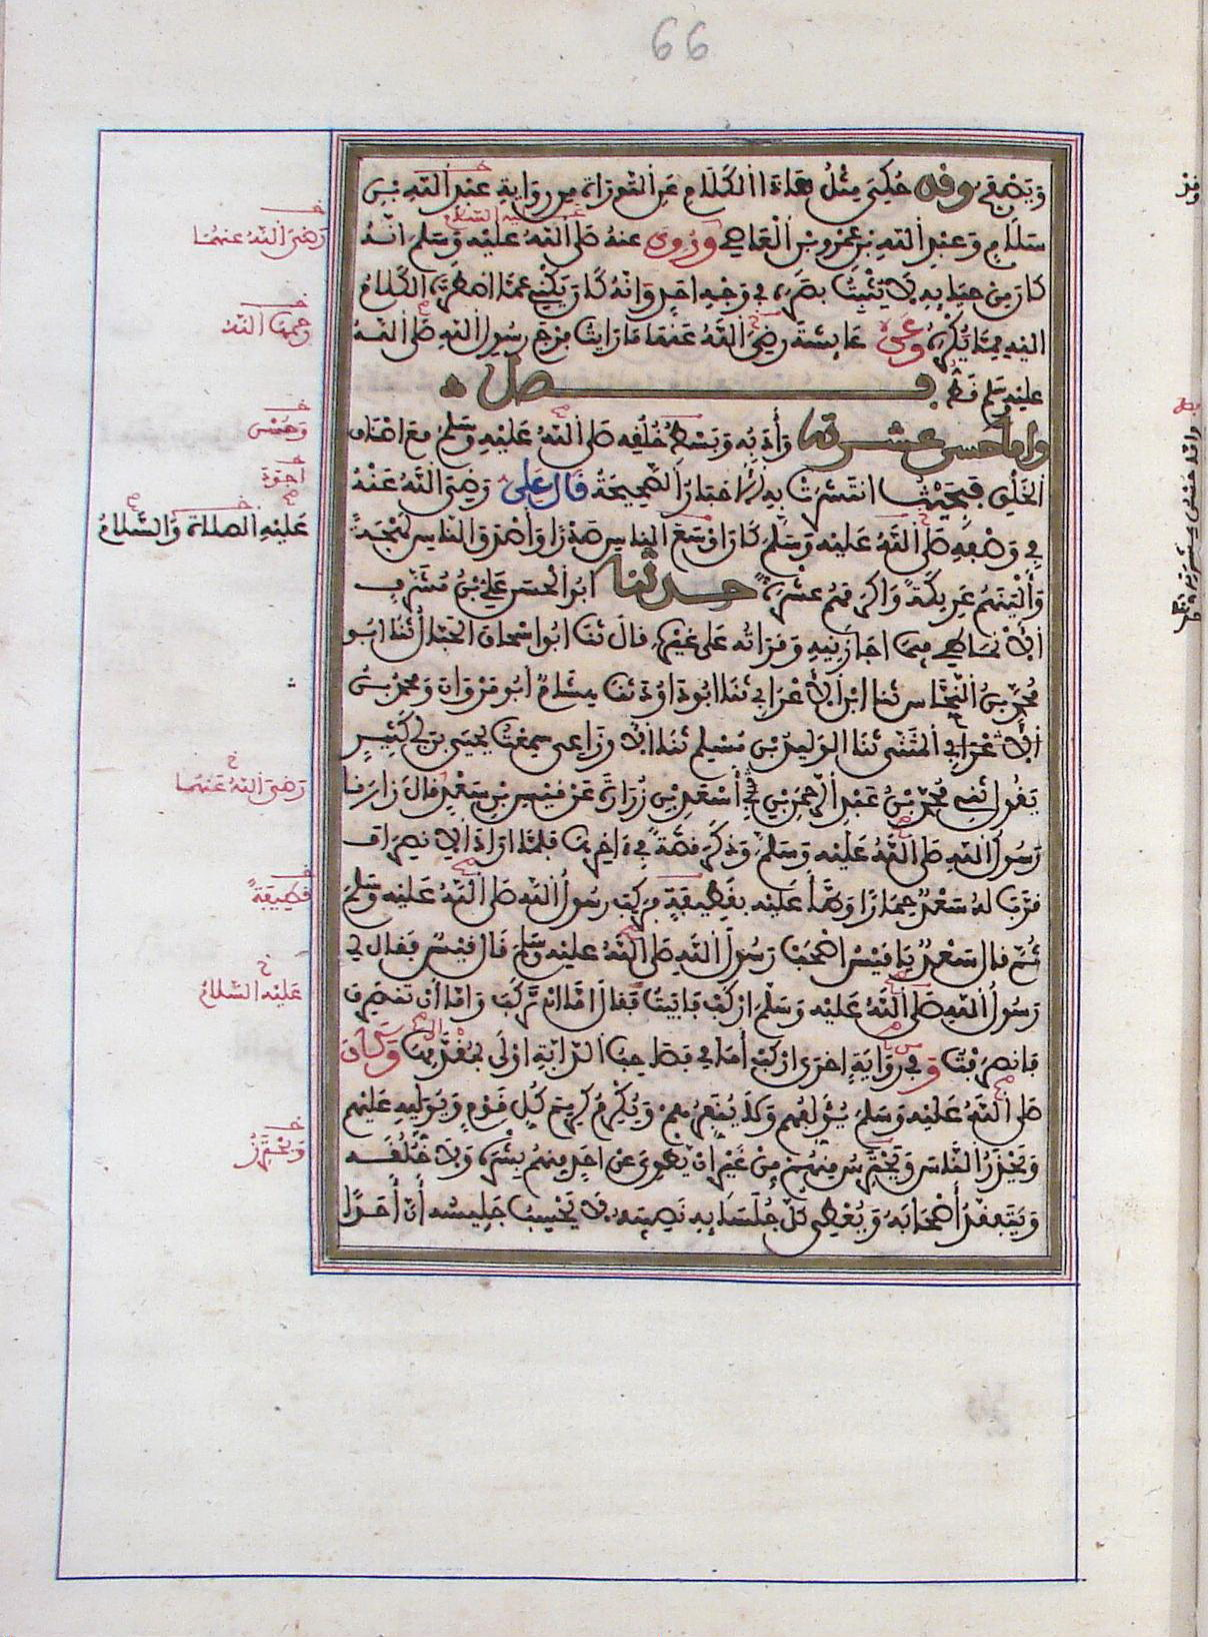 66
وَيَصْفَحُ وقد حُكِيَ مِثْلُ هَذَا الْكَلَامِ عَنِ التَّوْرَاةِ مِن رِوَايَةِ عَبْدِ اللَّهِ بْنِ
سَلَامٍ وَعَبْدِ اللَّهِ بْنِ عَمْرِو بْنِ الْعَاصِي وَرُوِيَ عنهُ صَلَّى اللَّهُ عَلَيْهِ وَسَلَّمَ أَنَّهُ
كَانَ مِنْ حَيَائِهِ لَا يُثْبِتُ بَصَرَهُ فِي وَجْهِ أَحَدٍ وَأَنَّهُ كَانَ يَكْنِي عَمَّا اضْطَرَّهُ الْكَلَامُ
إِلَيْهِ مِمَّا يُكْرَهُ وعن عَائِشَةَ رَضِيَ اللَّهُ عَنْهَا مَا رَأَيْتُ فَرْجَ رَسُولِ اللَّهِ صَلَّى اللَّهُ
عَلَيْهِ وَسَلَّمَ قَطُّ فصل
وأما حسن عشرته وَأَدَبُهُ وَبَسْطُ خُلُقِهِ صَلَّى اللَّهُ عَلَيْهِ وَسَلَّمَ مَعَ أَصْنَافِ
الْخَلْقِ فَبِحَيْثُ انْتَشَرَتْ بِهِ الْأَخْبَارُ الصَّحِيحَةُ قَالَ عَلِيٌّ رَضِيَ اللَّهُ عَنْهُ
فِي وَصْفِهِ صَلَّى اللَّهُ عَلَيْهِ وَسَلَّمَ كَانَ أَوْسَعَ النَّاسِ صَدْرًا وَأَصْدَقَ النَّاسِ لَهْجَةً
وَأَلْيَنَهُمْ عَرِيكَةً وَأَكْرَمَهُمْ عِشْرَةً حدثنا أَبُو الْحَسَنِ عَلِيُّ بْنُ مُشَرَّفٍ
الْأَنْمَاطِي فِيمَا أَجَازَنِيهِ وَقَرَأْتُهُ عَلَى غَيْرِهِ قَالَ ثَنَا أَبُو إِسْحَاقَ الْحَبَّالُ ثَنَا أَبُو
مُحَمَّدٍ بْنُ النَّحَّاسِ ثَنَا ابْنُ الْأَعْرَابِي ثَنَا أَبُو دَاوُدَ ثَنَا هِشَامٌ أَبُو مَرْوَانَ وَمُحَمَّدُ بْنُ
الْمُثَنَّى ثَنَا الْوَلِيدُ بْنُ مُسْلِمٍ ثَنَا الْأَوْزَاعِي سَمِعْتُ يَحْيَى بْنَ أَبِي كَثِيرٍ
يَقُولُ ثَنِي مُحَمَّدُ بْنُ عَبْدِ الرَّحْمَنِ بْنِ أَسْعَدِ بْنِ زُرَارَةَ عَنْ قَيْسِ بْنِ سَعْدٍ قَالَ زَارَنَا
رَسُولُ اللَّهِ صَلَّى اللَّهُ عَلَيْهِ وَسَلَّمَ وَذَكَرَ قِصَّةً فِي آخِرِهَا فَلَمَّا أَرَادَ الِانْصِرَافَ
قَرَّبَ لَهُ سَعْدٌ حِمَارًا وَطَّأَ عَلَيْهِ بِقَطِيفَةٍ فَرَكِبَ رَسُولُ اللَّهِ صَلَّى اللَّهُ عَلَيْهِ وَسَلَّمَ
ثُمَّ قَالَ سَعْدٌ يَا قَيْسُ اصْحَبْ رَسُولَ اللَّهِ صَلَّى اللَّهُ عَلَيْهِ وَسَلَّمَ قَالَ قَيْسٌ فَقَالَ لِي
رَسُولُ اللَّهِ صَلَّى اللَّهُ عَلَيْهِ وَسَلَّمَ ارْكَبْ فَأَبَيْتُ فَقَالَ إِمَّا أَنْ تَرْكَبَ وَإِمَّا أَنْ تَنْصَرِفَ
فَانْصَرَفْتُ وَفِي رِوَايَةٍ أُخْرَى ارْكَبْ أَمَامِي فَصَاحِبُ الدَّابَّةِ أَوْلَى بِمُقَدَّمِهَا وَكَانَ
صَلَّى اللَّهُ عَلَيْهِ وَسَلَّمَ يُؤَلِّفُهُمْ وَلَا يُنَفِّرُهُمْ وَيُكْرِمُ كَرِيمَ كُلِّ قَوْمٍ وَيُوَلِّيهِ عَلَيْهِمْ
وَيَحْذَرُ النَّاسَ وَيَحْتَرِسُ مِنْهُمْ مِنْ غَيْرِ أَنْ يَطْوِيَ عَنْ أَحَدٍ مِنْهُمْ بِشْرَهُ وَلَا خُلُقَهُ
وَيَتَفَقَّدُ أَصْحَابَهُ وَيُعْطِي كُلَّ جُلَسَائِهِ نَصِيبَهُ لَا يَحْسِبُ جَلِيسُهُ أَنَّ أَحَدًا
رَضِيَ اللَّهُ عَنْهُمَا
وَحُسْنِ
عَلَيْهِ الصَّلَاةُ وَالسَّلَامُ
رَضِيَ اللَّهُ عَنْهُمَا
قَطِيفَةً
عَلَيْهِ السَّلَامُ